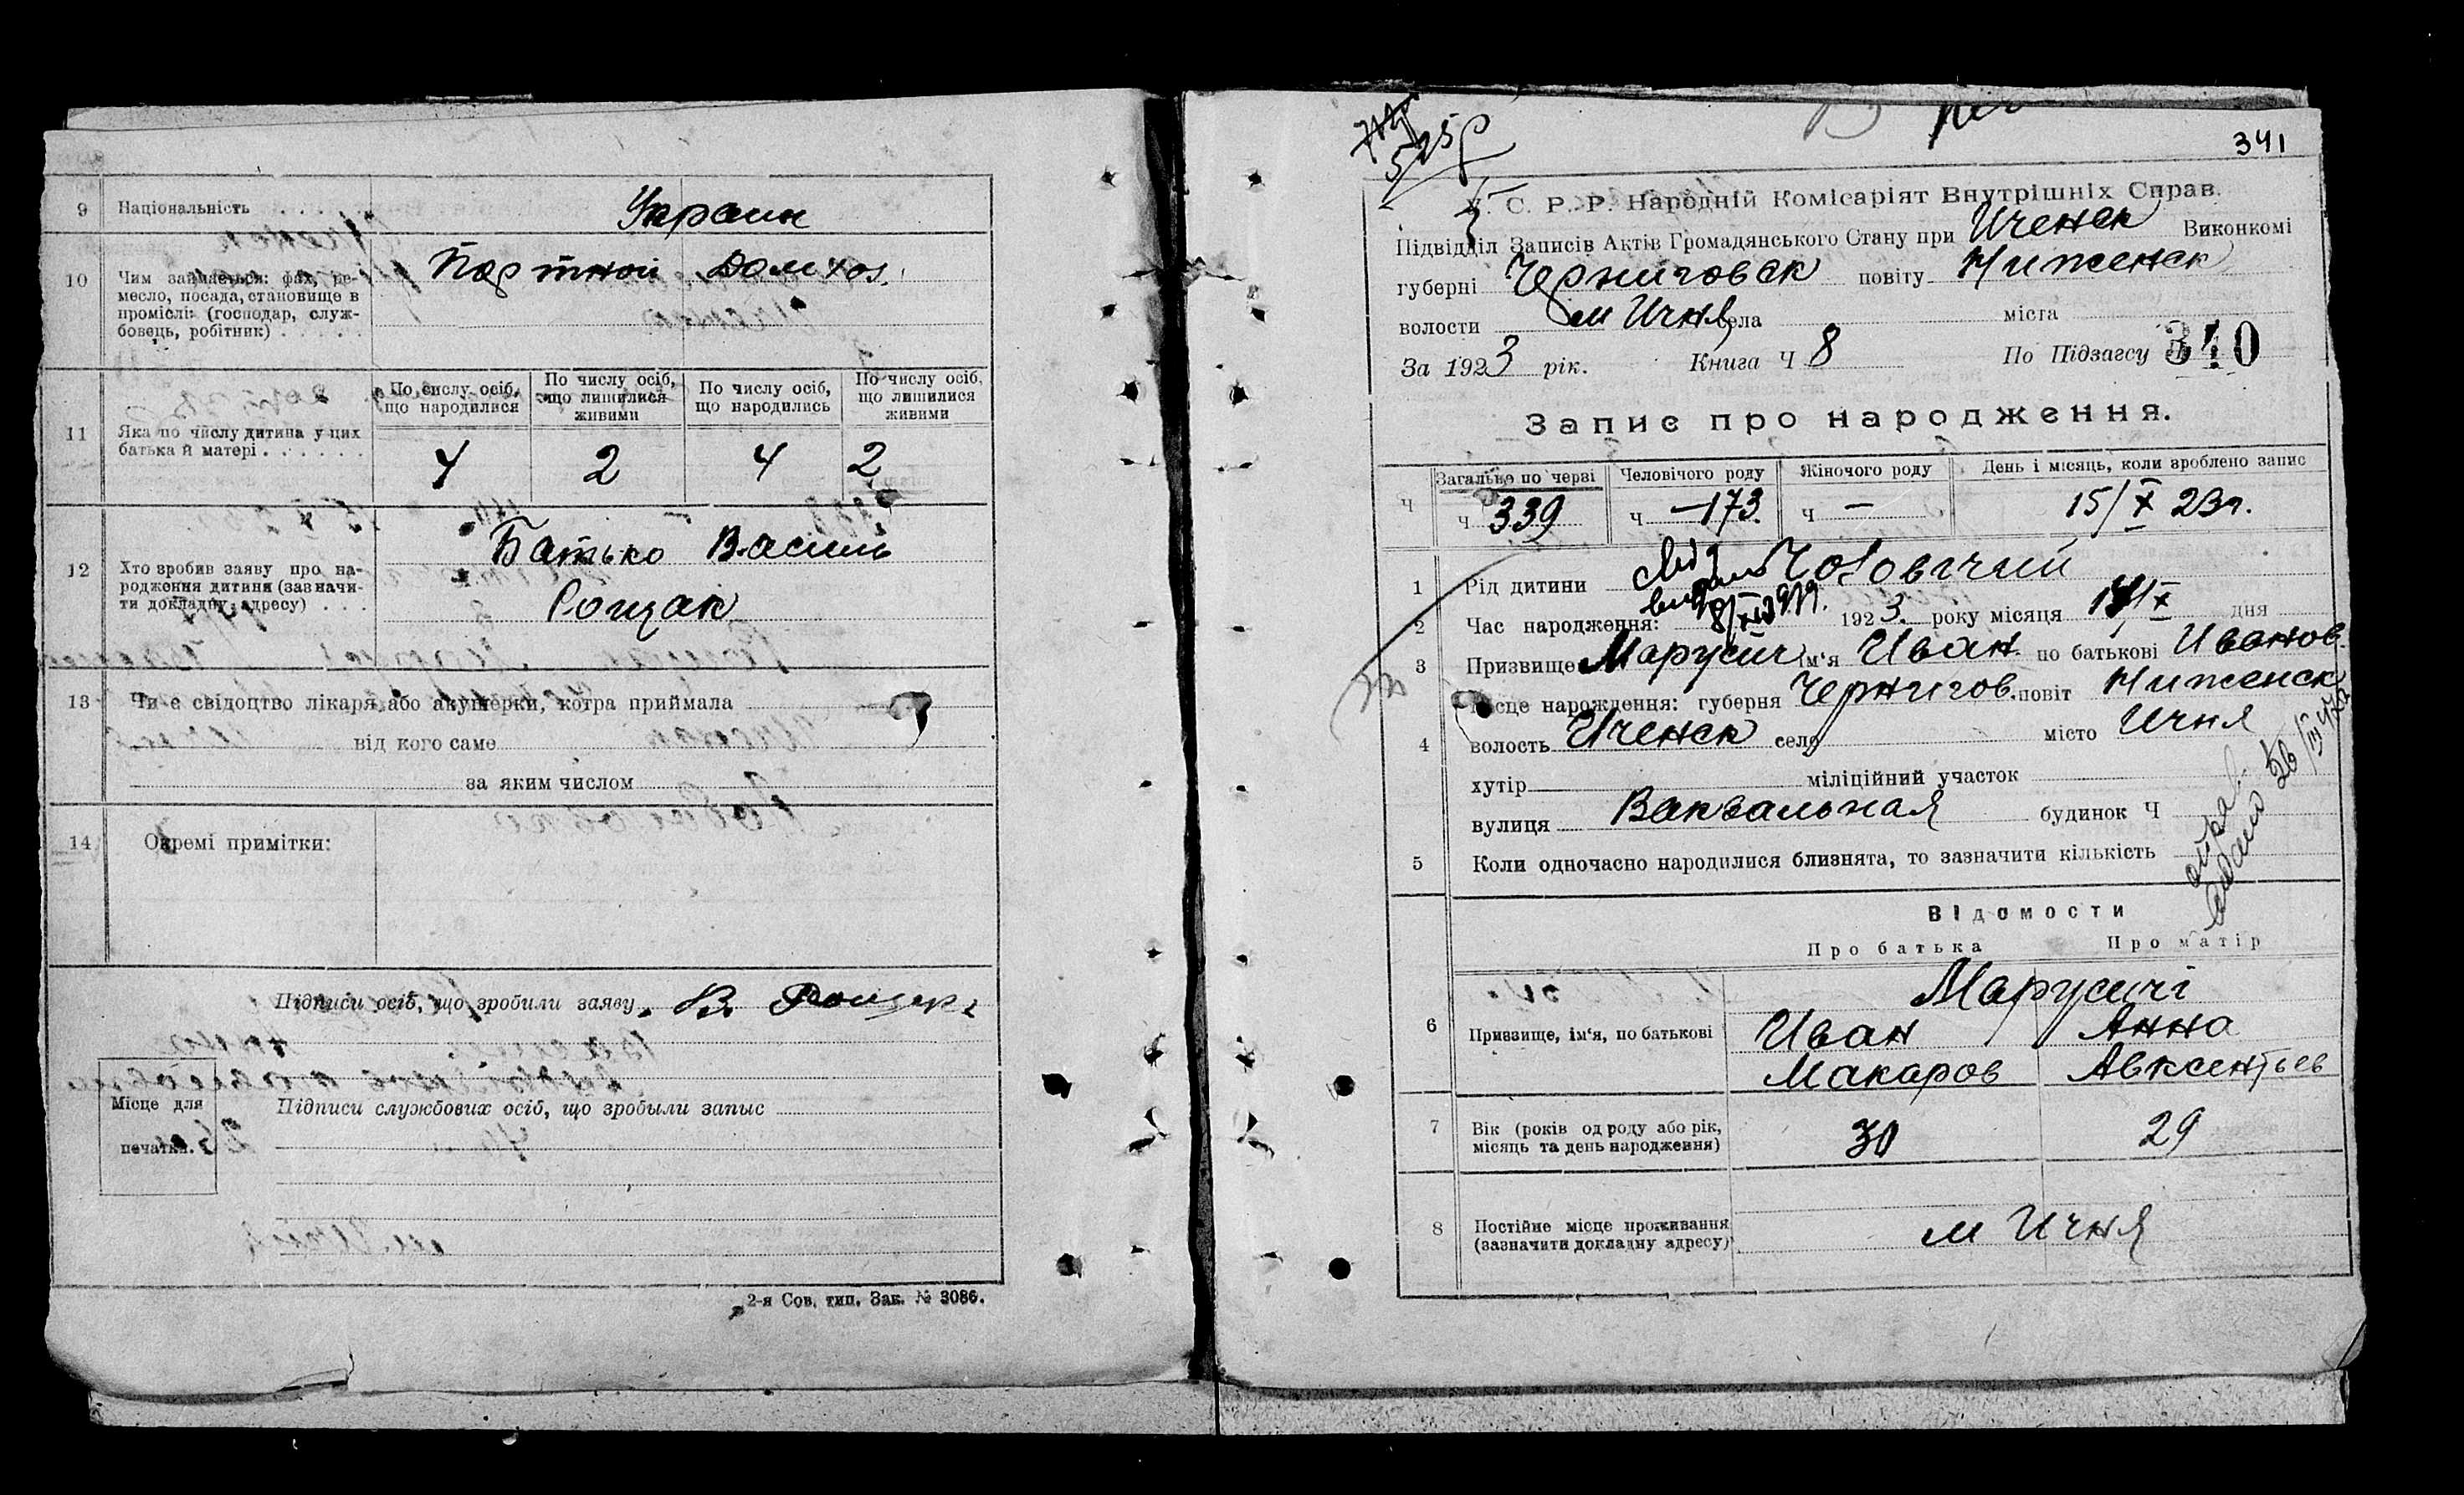 9 Національність . . . . Украин
10 Чим займається: фах, ре-
месло, посада, становище в
промислі: (господар, служ-
бовець, робітник) . . . . .
Портной Домхоз.
11 Яка по числу дитина у цих
батька й матері . . . . . .
По числу осіб, що народилися
По числу осіб, що лишилися живими
По числу осіб, що народились
По числу осіб, що лишилися живими
4 2 4 2
12 Хто зробив заяву про на-
родження дитини (зазначи-
ти докладну адресу) . . .
Батько Василь
Рощак
13 Чи є свідоцтво лікаря або акушерки, котра приймала
від кого саме
за яким числом
14 Окремі примітки:
Підписи осіб, що зробили заяву В. Рощак
Підписи службових осіб, що зробыли запыс
Місце для
печатки.
2-я Сов. тип. Зак. № 3086.
341
У. С. Р. Р. Народній Комісаріят Внутрішніх Справ.
Підвідділ Записів Актів Громадянського Стану при Иченск Виконкомі
губерні Черниговск повіту Нижен­ск
волости м Ичня села міста
За 1923 рік. Книга Ч 8 По Підзагсу 340
Запис про народження.
Ч Загально по черві Человічого роду Жіночого роду День і місяць, коли зроблено запис
ч 339 ч —173. ч — 15/X 23г.
1 Рід дитини Чоловічий
2 Час народження: 1923. року місяця 14/X дня
3 Призвище Марусич ім'я Иван по батькові Иванов.
4 Місце нарождення: губерня Чернигов. повіт Нижен­ск
волость Иченск село місто Ичня
хутір міліційний участок
вулиця Вакзальная будинок Ч
5 Коли одночасно народилися близнята, то зазначити кількість
Відомости
Про батька Про матір
6 Призвище, ім'я, по батькові
Марусичі
Иван Анна
Макаров Авксентьев
7 Вік (років од роду або рік,
місяць та день народження)
30 29
8 Постійне місце проживання
(зазначити докладну адресу)
м Ичня